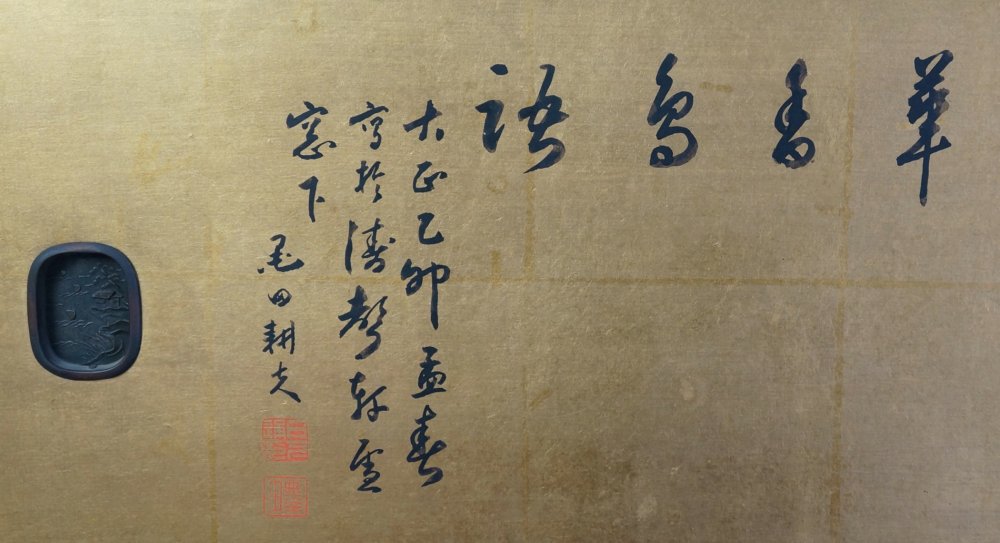 華香鳥語
大正乙卯孟春
寫於濤聲軒雪
窓下 墨田耕夫